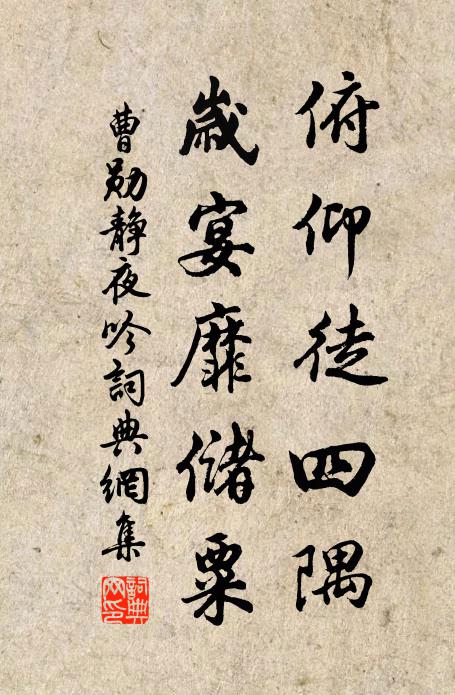 俯仰徒四隅
歲宴靡儲粟
曹勛靜夜吟詞典網集
詞典網印